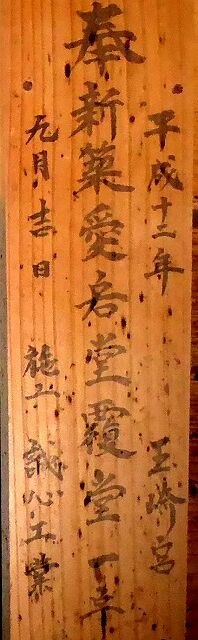 平成十二年 玉崎宮
奉新築愛宕堂覆堂一宇
九月吉日 施工 誠心工業